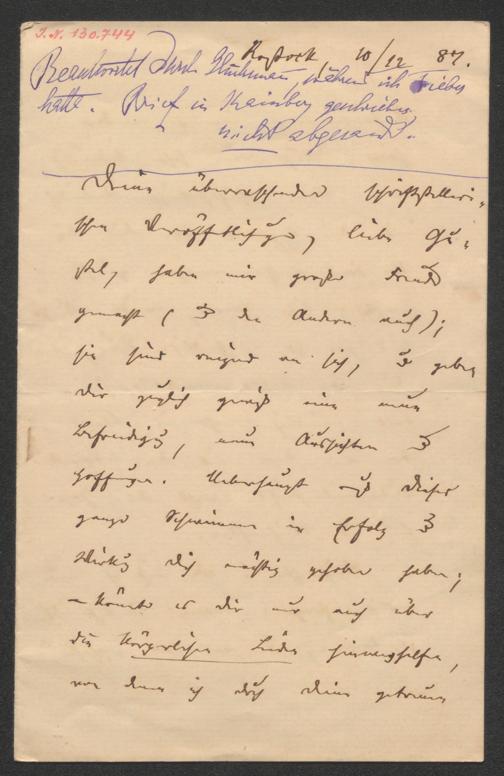 I.N. 130.744
Rostock 10/12 87.
Beantwortet durch während ich Fieber
hatte. Brief in Hainberg geschrieben
nicht abgesandt.
Deine überraschenden schriftstelleri-
schen Veröffentlichungen, liebe Gu-
stel, haben mir große Freude
gemacht (u den Andern auch);
sie sind reizend an sich, u geben
Dir zugleich gewiß eine neue
Befriedigg, neue Aussichten u
Hoffnungen. Ueberhaupt muß dieses
ganze Schwimmen in Erfolg u
Wirkg Dich mächtig gehoben haben;
– könnte es Dir nur auch über
die körperlichen Leiden hinweghelfen,
von denen ich durch Deine getreuen